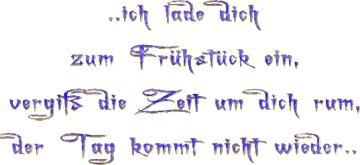 ..ich lade dich
zum Frühstück ein,
vergiß die Zeit um dich rum,
der Tag kommt nicht wieder..